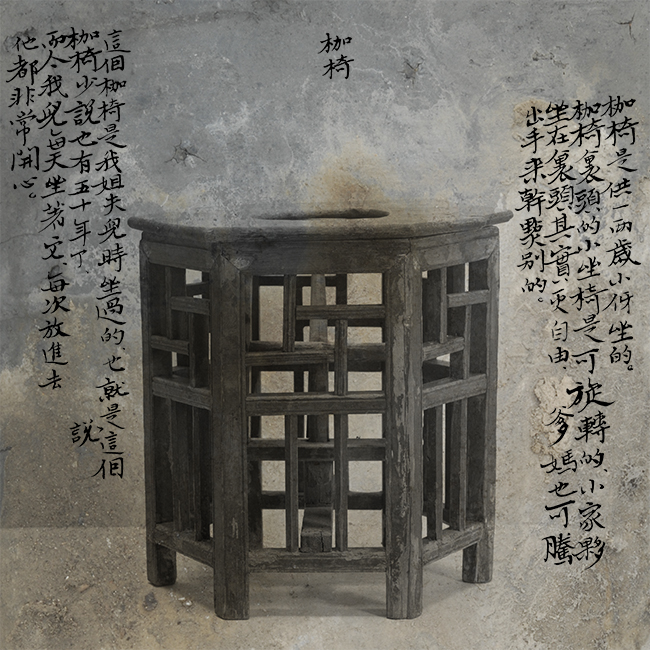 枷椅
枷椅是供一兩歲小伢坐的。
枷椅裏頭的小坐椅是可旋轉的、小家夥
坐在裏頭其實自由、爹媽也可騰
出手来幹點别的。
這個枷椅是我姐夫兒時坐過的、也就是這個
枷椅少說也有五十年了、
説
而今我兒每天坐著它、每次放進去
他都非常開心。